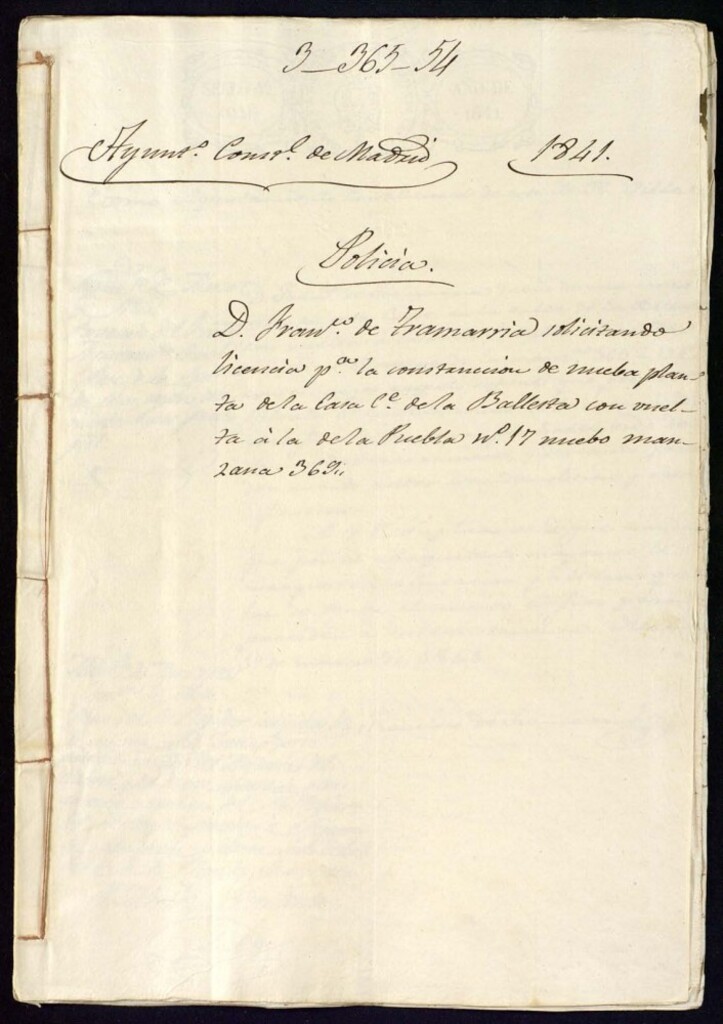 3-365-54
Ayunt.º Const.l de Madrid 1841.
Policia.
D. Fran.co de Tramarria solicitando
licencia p.a la construccion de nueba plan-
ta de la Casa C.e de la Ballesta con vuel-
ta à la de la Puebla n.º 17 nuebo man-
zana 369.